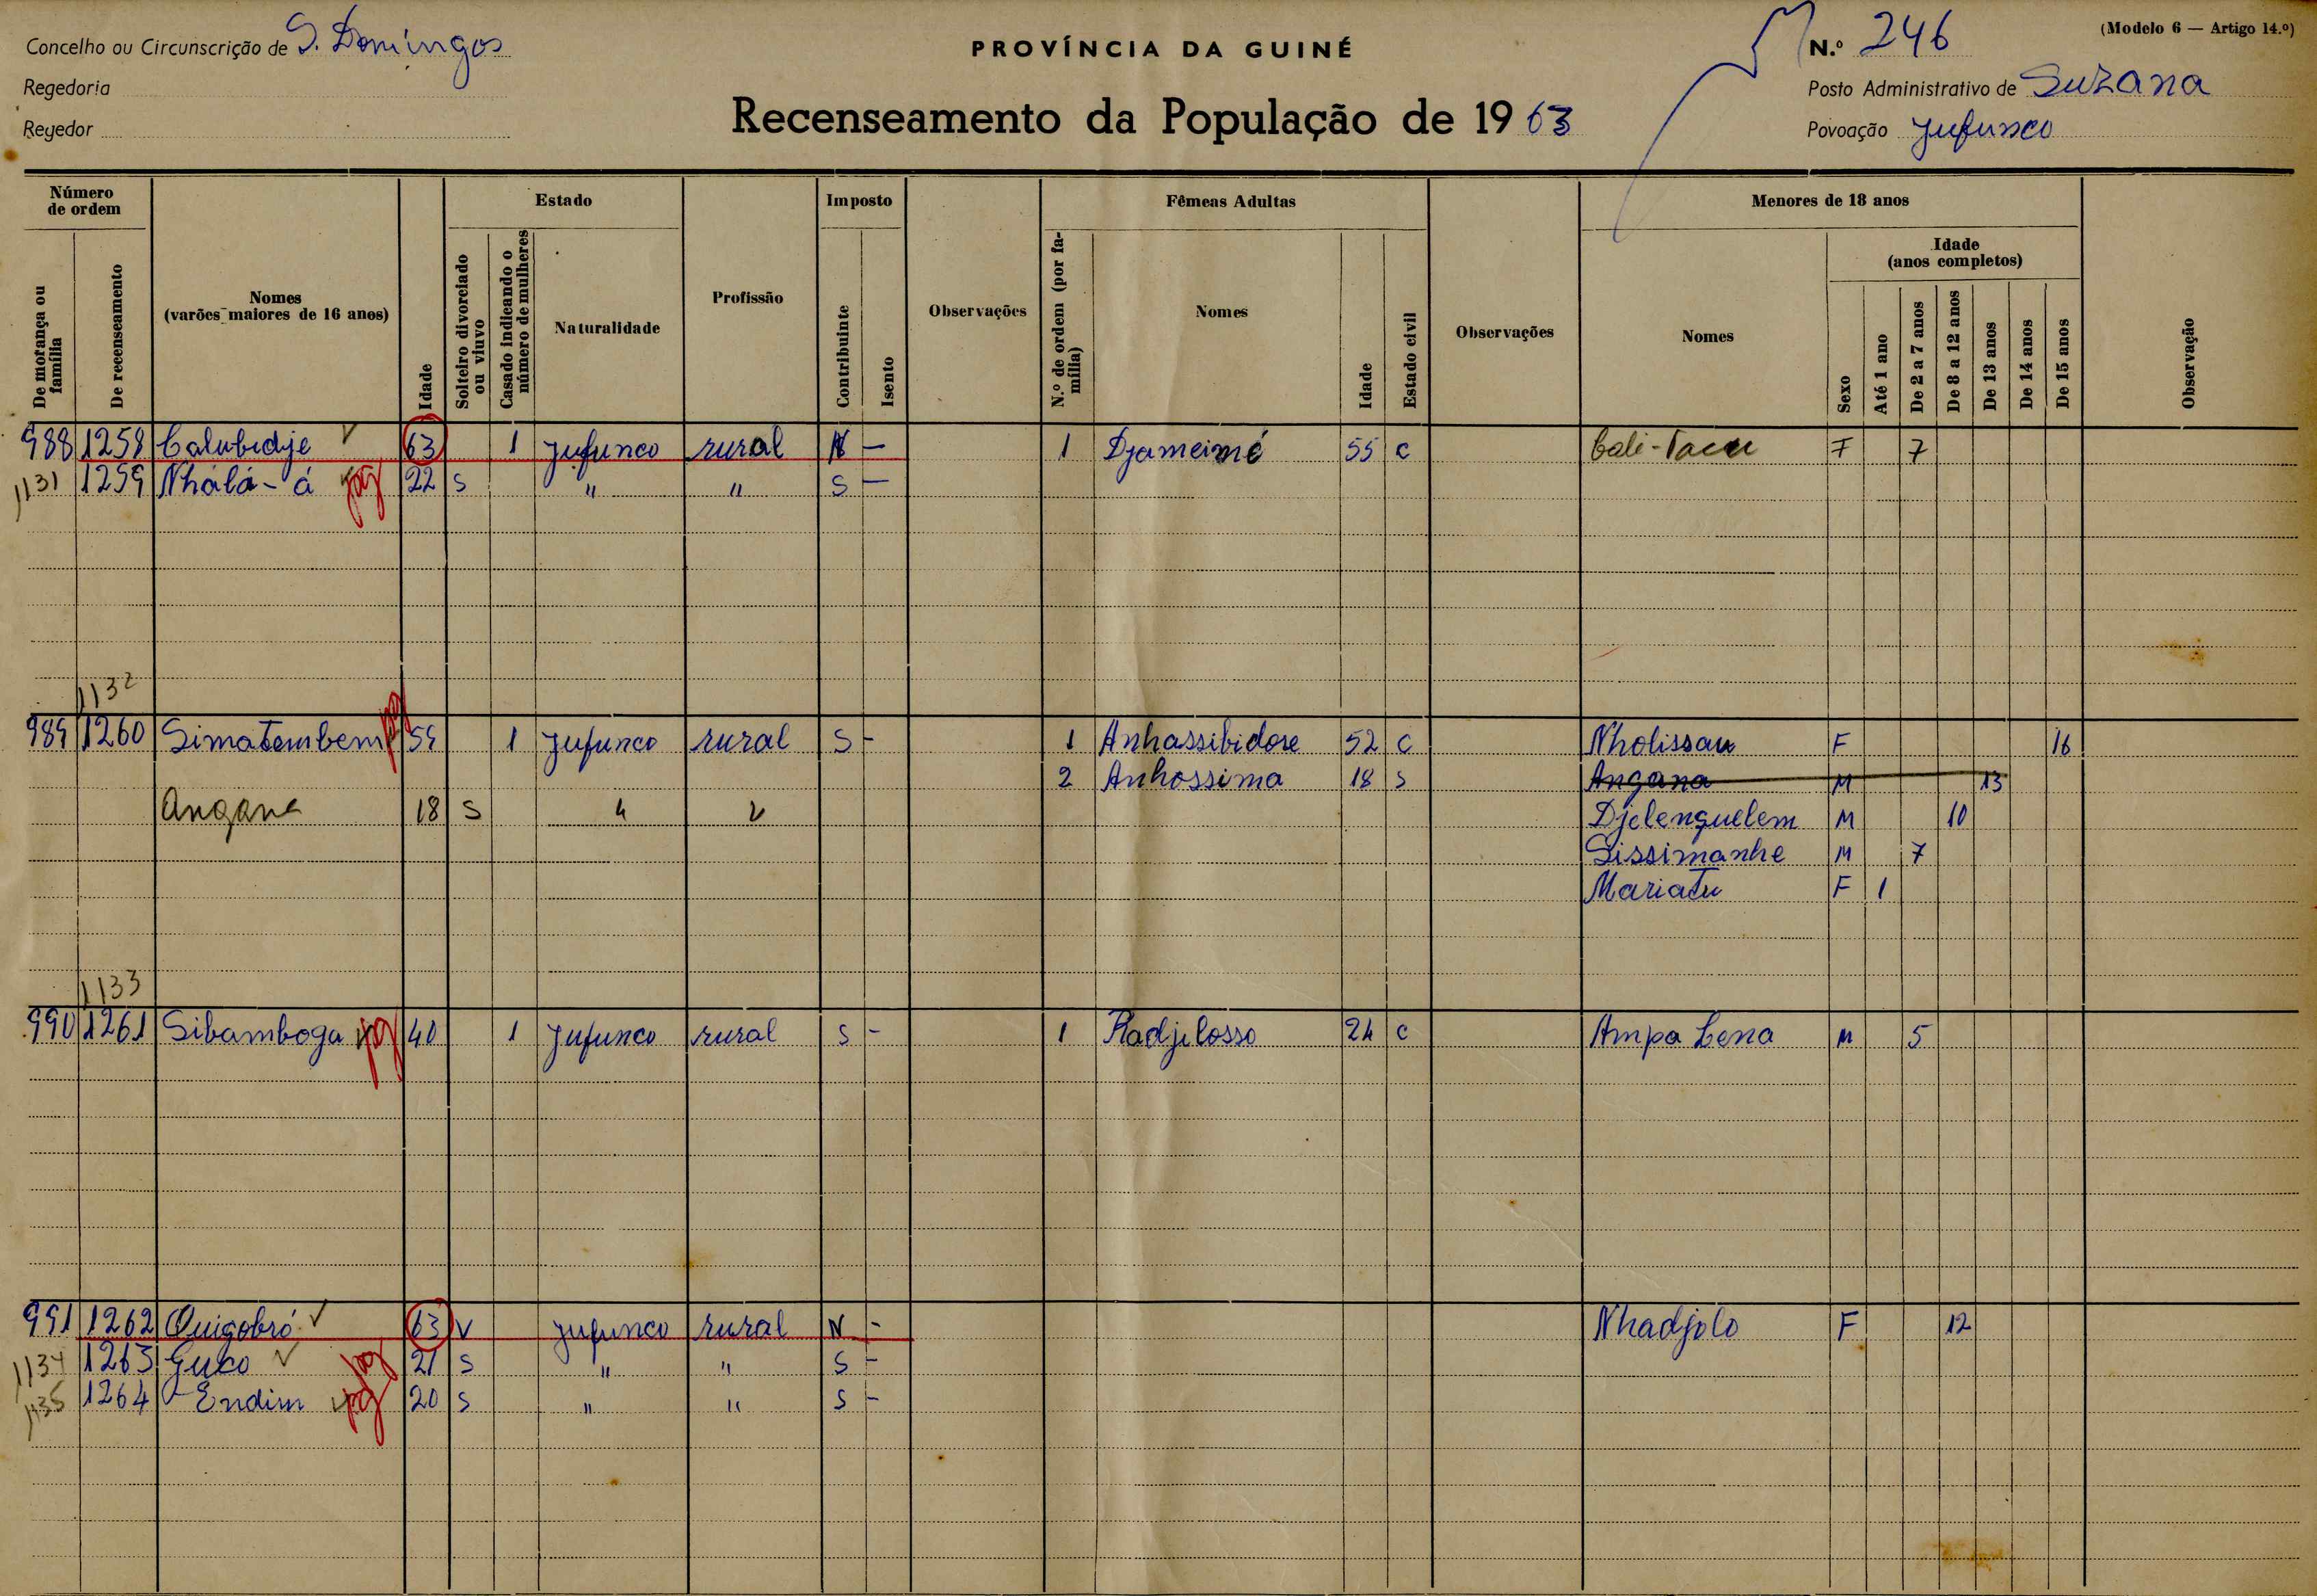 Concelho ou Circunscrição de S. Domingos
Regedoria
Regedor
PROVÍNCIA DA GUINÉ
Recenseamento da População de 1963
(Modelo 6 — Artigo 14.º)
N.º 246
Posto Administrativo de Suzana
Povoação Jufunco
Número de ordem
De morança ou família
De recenseamento
Nomes (varões maiores de 16 anos)
Idade
Estado
Solteiro divorciado ou viuvo
Casado indicando o número de mulheres
Naturalidade
Profissão
Imposto
Contribuinte
Isento
Observações
Fêmeas Adultas
N.º de ordem (por família)
Nomes
Idade
Estado civil
Observações
Menores de 18 anos
Nomes
Idade (anos completos)
Sexo
Até 1 ano
De 2 a 7 anos
De 8 a 12 anos
De 13 anos
De 14 anos
De 15 anos
Observação
988 1258 Calubidje 63 1 Jufunco rural N — 1 Djameimé 55 C Cali-Tacu F 7
1131 1259 Nhálá-á pg 22 S " " S —
1132
989 1260 Simatembem pg 59 1 Jufunco rural S - 1 Anhassibidore 52 C Nholissau F 16
2 Anhossima 18 S Angana M 13
Angana 18 S " " Djelenguelem M 10
Sissimanhe M 7
Mariatu F 1
1133
990 1261 Sibamboga pg 40 1 Jufunco rural S - 1 Radjilosso 24 C Ampa Lena M 5
991 1262 Quigobró 63 V Jufunco rural N - Nhadjolo F 12
1134 1263 Guco pg 21 S " " S -
1135 1264 Endim pg 20 S " " S -